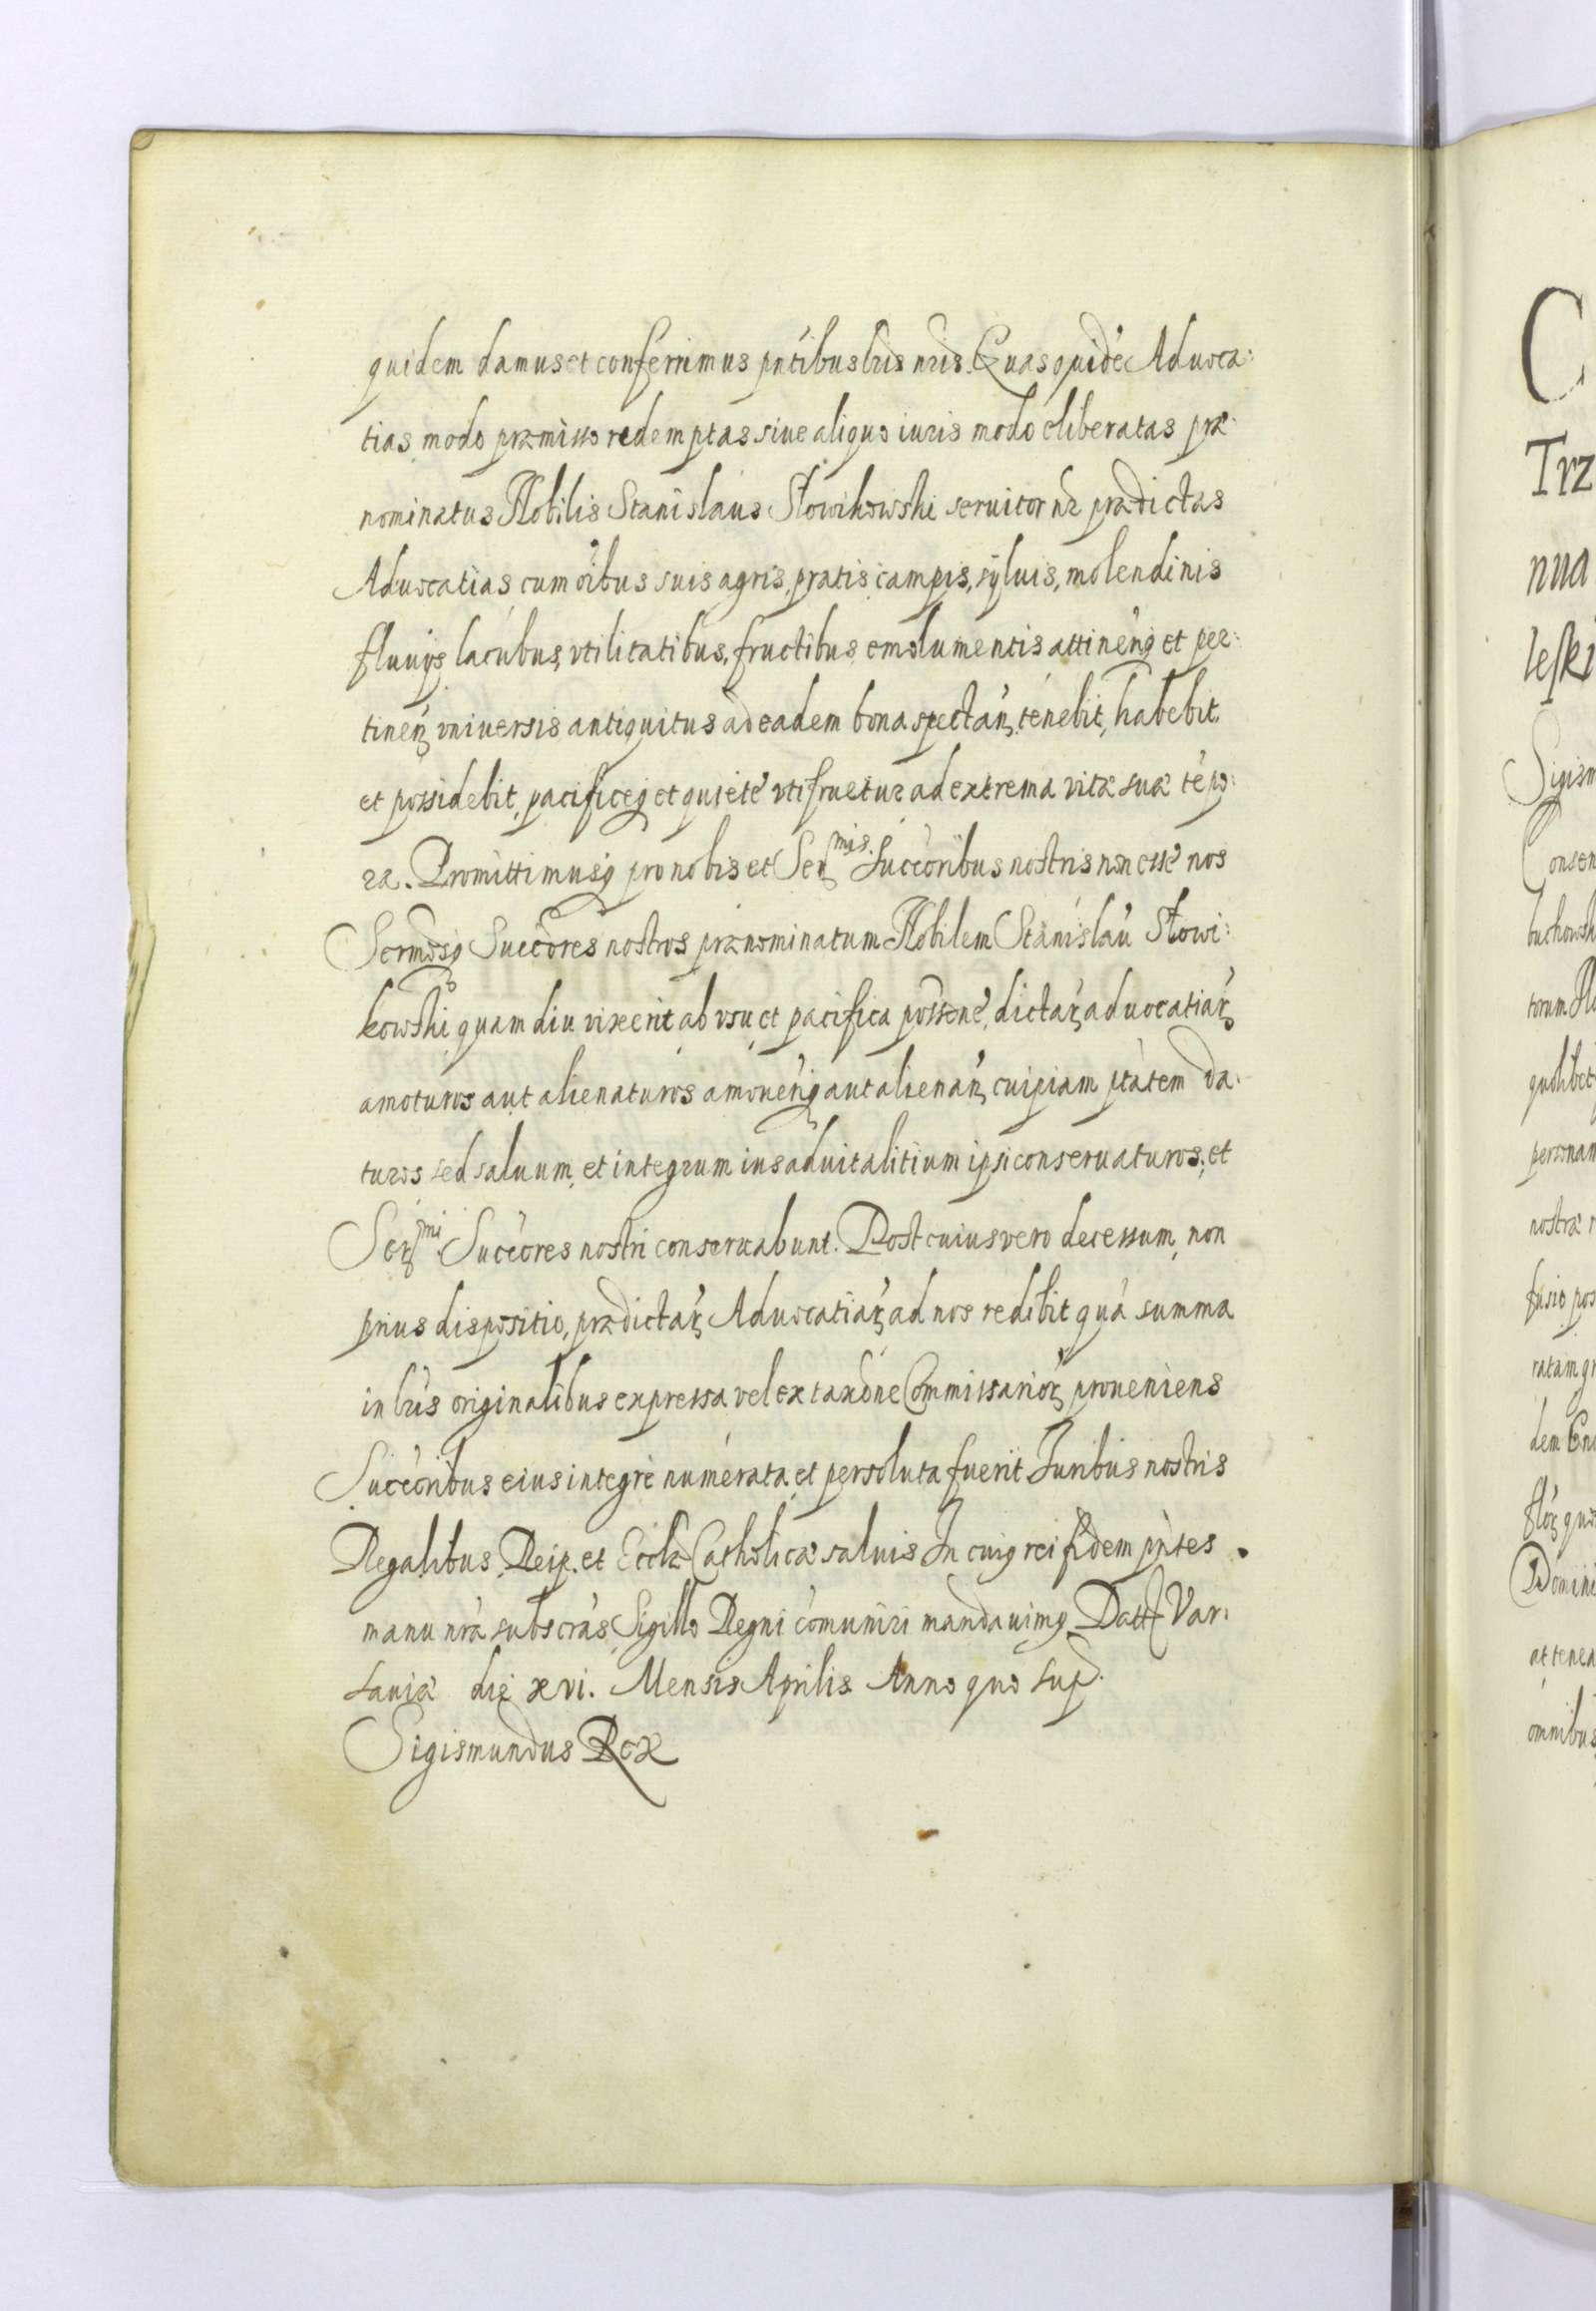 quidem damus et conferrimus pntibus lris nris. Quas quidē Aduoca:
tias modo præmisso redemptas siue aliquo iuris modo eliberatas præ:
nominatus Nobilis Stanislaus Słowikowski seruitor nr prædictas
Aduocatias cum oibus suis agris, pratis, campis, syluis, molendinis
fluuijs lacubus, vtilitatibus, fructibus emolumentis attinenꝫ et per:
tinenꝫ vniuersis antiquitus ad eadem bona spectanꝫ tenebit, habebit,
et possidebit, pacificeqꝫ et quiete vtifruetur ad extrema vitæ suæ tēpo:
ra. Promittimusqꝫ pro nobis et Serꝫmis. Succoribus nostris non esse nos
Sermosqꝫ Succores nostros prænominatum Nobilem Stanislaū Słowi:
kowski quam diu vixerit ab vsu et pacifica possone, dictarꝫ aduocatiarꝫ
amoturos aut alienaturos amouenꝫ aut alienanꝫ cuipiam ptatem da:
turos sed saluum, et integrum ius aduitalitium ipsi conseruaturos, et
Serꝫmi Succores nostri conseruabunt. Post cuius vero decessum, non
prius dispositio, prædictarꝫ Aduocatiarꝫ ad nos redibit quā summa
in lris originalibus expressa vel ex taxone Commissariorꝫ proueniens
Succoribus eius integre numerata et persoluta fuerit Iuribus nostris
Regalibus, Reip. et Eccl̄æ Catholicæ saluis In cuiꝯ rei fidem pntes
manu nra subscras, Sigillo Regni comuniri mandauimꝯ. Datt Var:
sauiæ die xvi. Mensis Aprilis Anno quo sup.
Sigismundus Rex
C
Trz
nua
leski
Sigism
Consen
buchowsk
torum No
quolibet
personam
nostræ
fusio pos
ratam gr
dem
quo
Domini
at tenea
omnibus